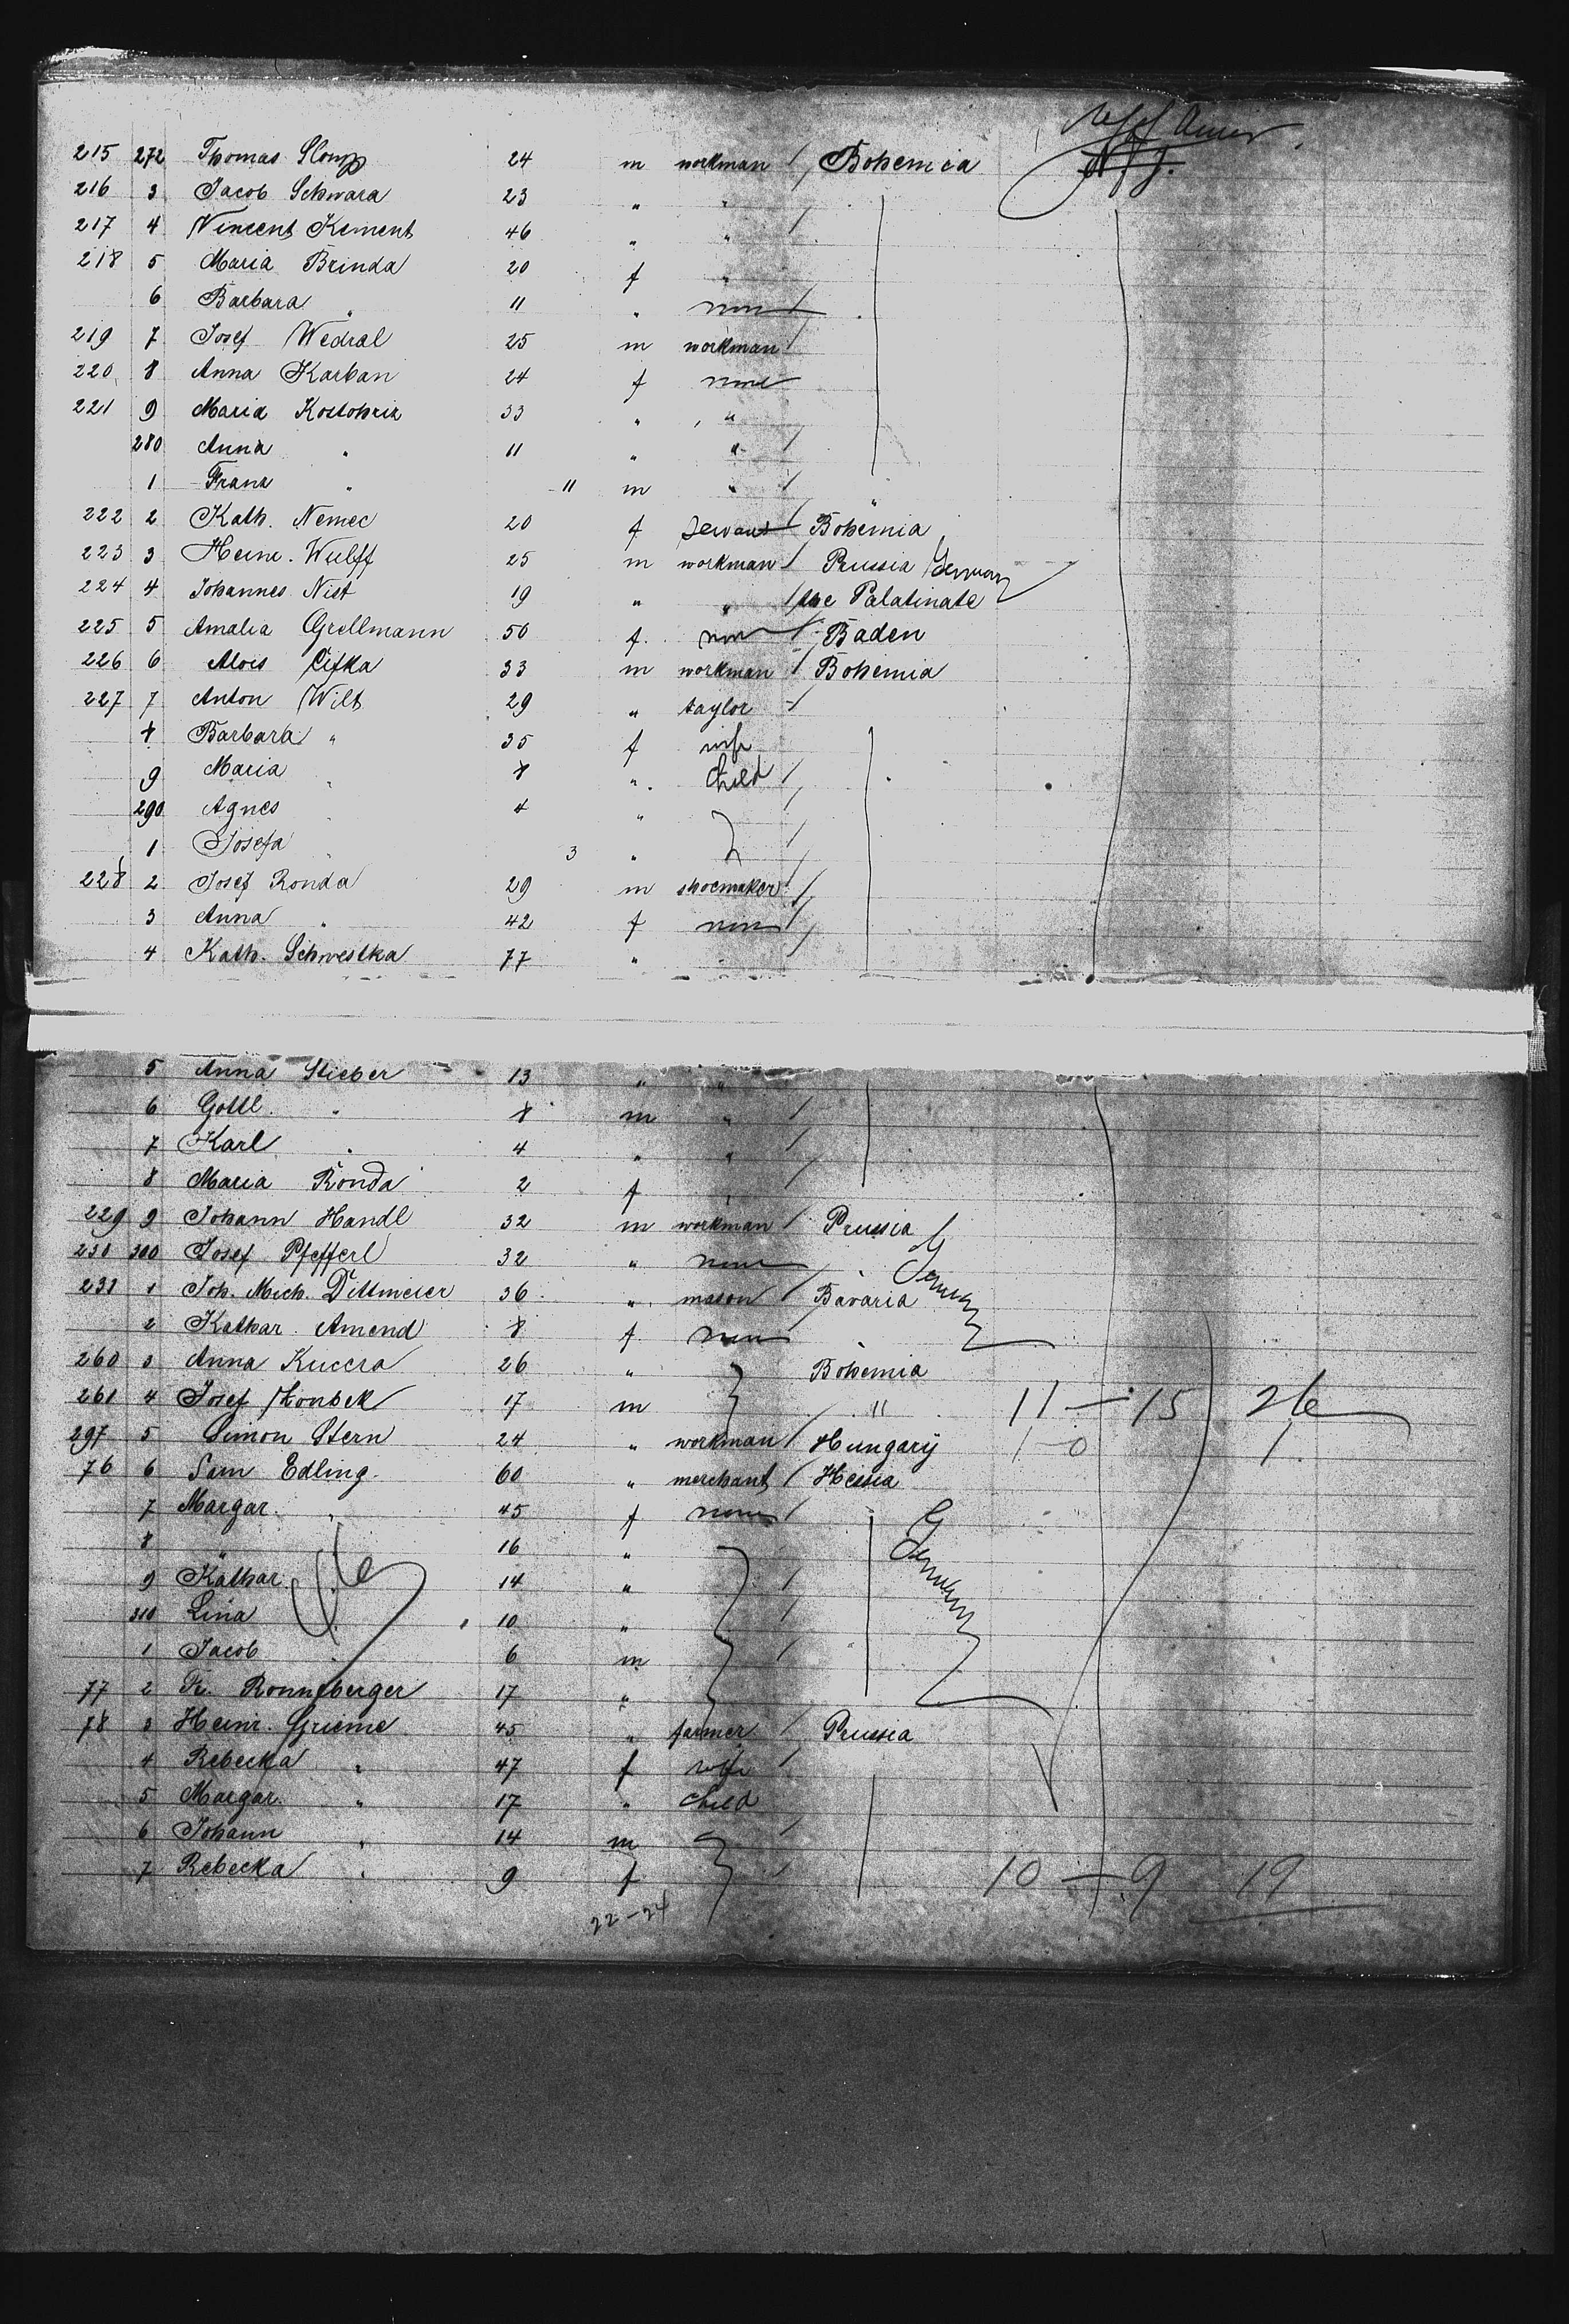 N.Y.
215 272 Thomas Slomp 24 m workman / Bohemia
216 3 Jacob Schwara 23 " "
217 4 Vincent Kement 46 " " /
218 5 Maria Brinda 20 f "
6 Barbara " 11 " none /
219 7 Josef Wedral 25 m workman /
220 8 Anna Karban 24 f none
221 9 Maria Kostohriz 33 " "
280 Anna " 11 " " /
1 Franz " 11 m " / "
222 2 Kath. Nemec 20 f servant / Bohemia
223 3 Heinr. Wulff 25 m workman / Prussia Germany
224 4 Johannes Nist 19 " " / the Palatinate
225 5 Amalia Grellmann 50 f. none / Baden
226 6 Alois Cifka 33 m workman / Bohemia
227 7 Anton Wilt 29 " taylor /
8 Barbara " 35 f wife
9 Maria " 8 " Child /
290 Agnes " 4 " /
1 Josefa " 3 " /
228 2 Josef Ronda 29 m shoemaker /
3 Anna " 42 f none /
4 Kath. Schwestka 77 "
5 Anna Stieber 13 " "
6 Gottl. " 8 m " /
7 Karl " 4 " " /
8 Maria Ronda 2 f " /
229 9 Johann Handl 32 m workman / Prussia
230 300 Josef Pfefferl 32 " none "
231 1 Joh. Mich. Dittmeier 36 " mason / Bavaria Germany
2 Kathar. Amend 8 f. none "
260 3 Anna Kucera 26 " Bohemia
261 4 Josef 17 m " 11 - 15 26
297 5 Simon Stern 24 " workman / Hungary 1 - 0 1
76 6 Sam Edling 60 " merchant / Hessia
7 Margar. " 45 f none /
8 " 16 " Germany
9 Kathar. 14 " /
310 Lina 10 " /
1 Jacob " 6 m /
77 2 Fr. Ronneberger 17 "
78 3 Heinr. Grieme 45 " farmer / Prussia
4 Rebecka " 47 f wife /
5 Margar. " 17 " Child
6 Johann " 14 m /
7 Rebecka " 9 f / 10 - 9 19
22-24